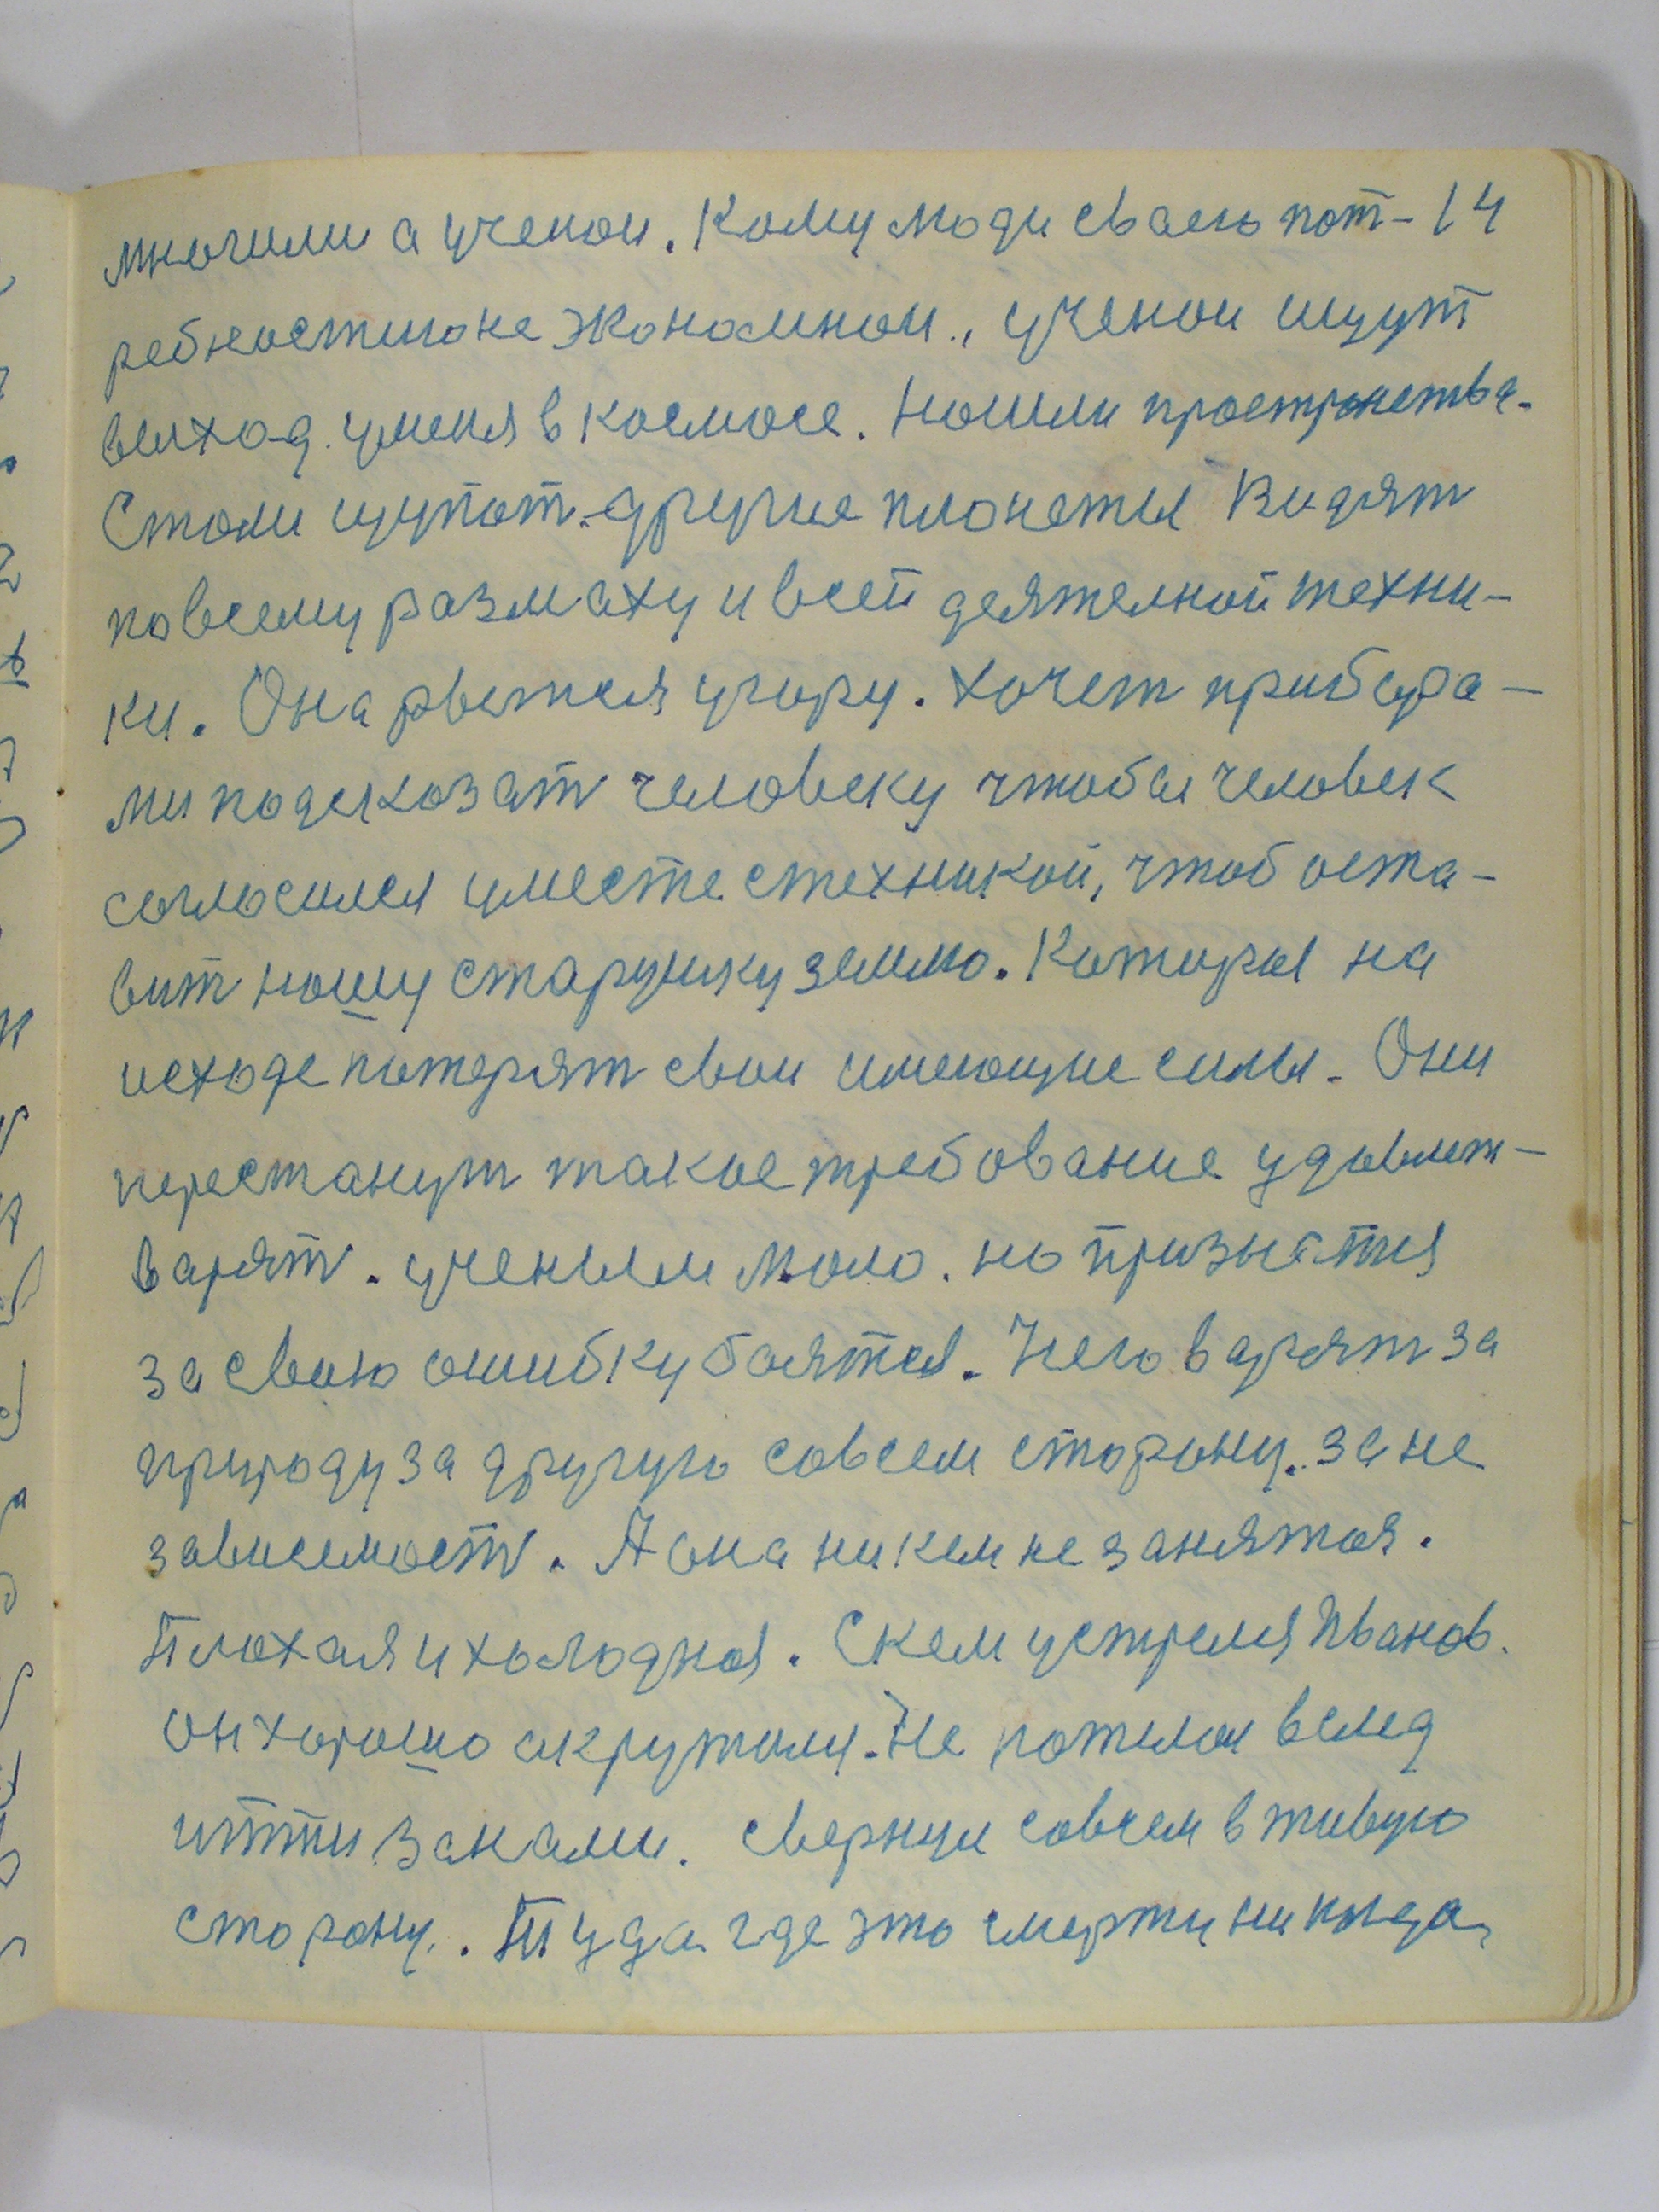 многими а ученои. Кому люди сваею пот- 14
ребностию не экономнои., ученои ищут
выход. имеия в космосе. Ношли простронства.
Стали щупат. другие плонеты Видят
повсему размаху и всей деятелной техни-
ки. Она рветься угору. Хочет прибора-
ми подсказат человеку чтобы человек
согласился уместе стехникой, чтоб оста-
вит ношу старушку землю. Которы на
исходе потерят свои имеющие силы. Они
перестанут такое требование удовлет-
варят. ученыем мало. но признатся
за свою ошибку боятся. Чего варят за
природу за другую совсем сторону. за не
зависемост. А она ни кем не занятоя.
Плохая и холодноя. Скем устремя Иванов.
он хорошо окружили. Не пожелол вслед
итти занами. свернул совсем в живую
сторону. Туда где это смерти никогда,